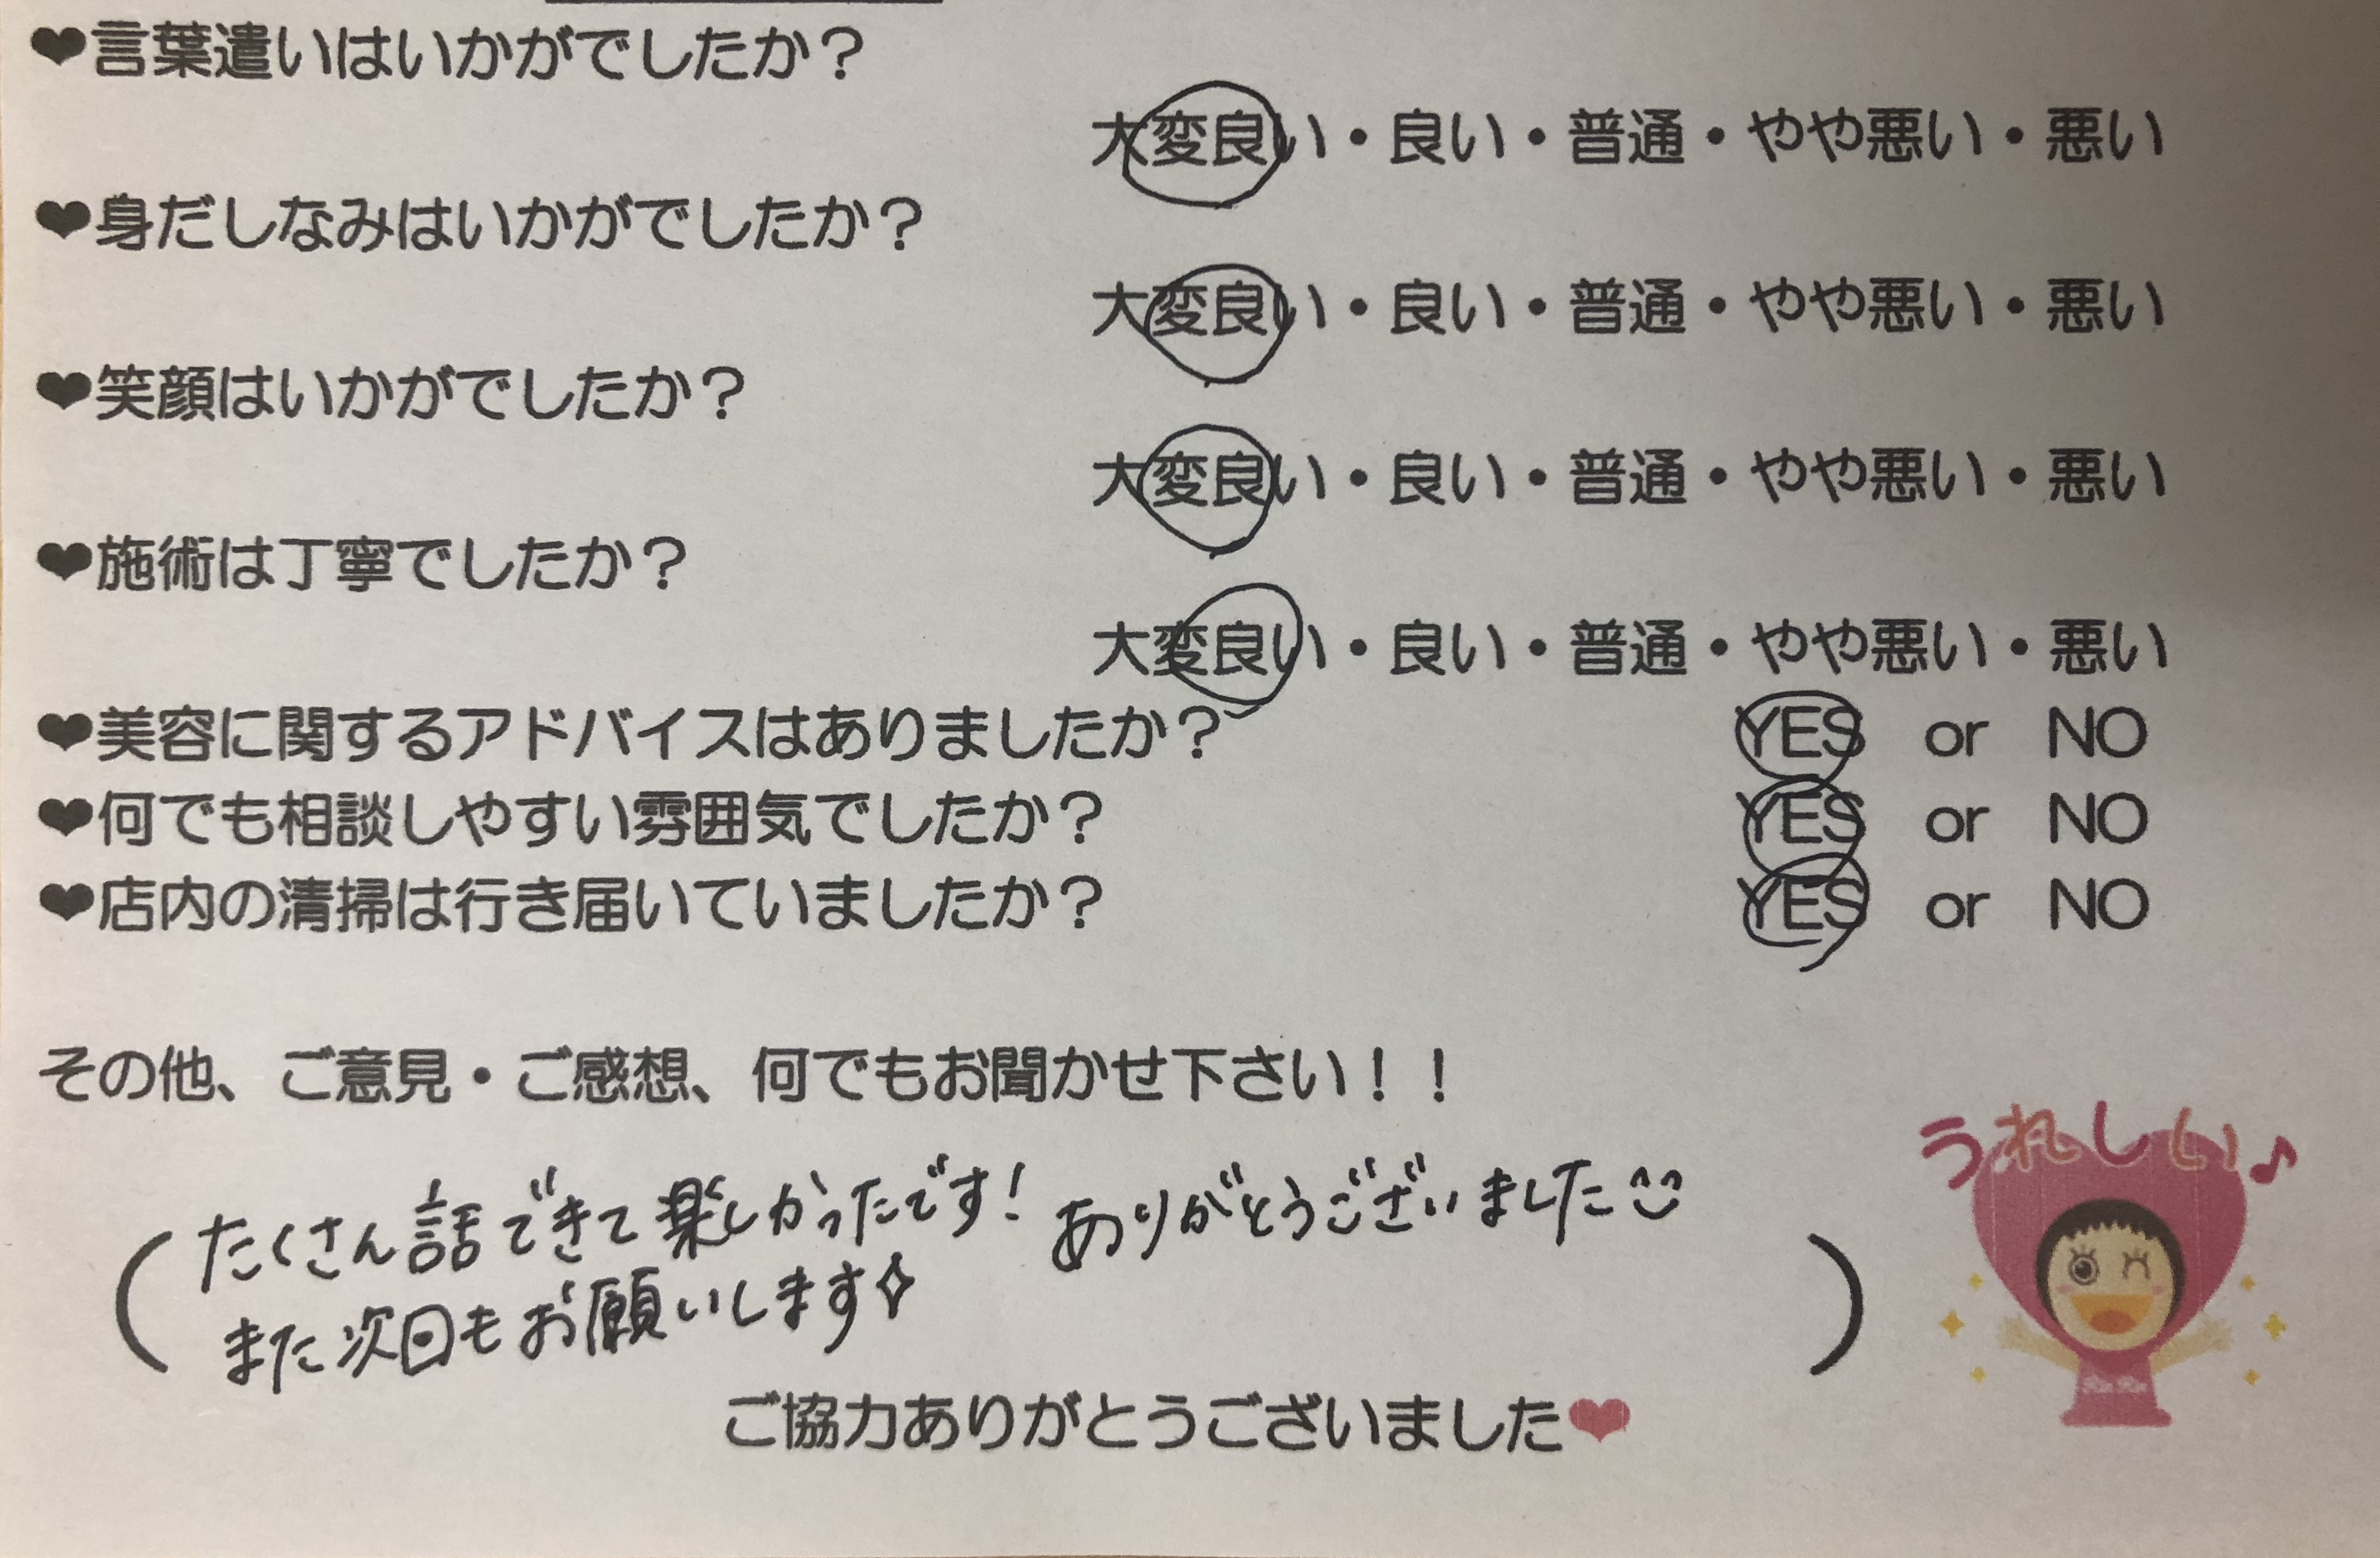 ❤言葉遣いはいかがでしたか？
大変良い・良い・普通・やや悪い・悪い
❤身だしなみはいかがでしたか？
大変良い・良い・普通・やや悪い・悪い
❤笑顔はいかがでしたか？
大変良い・良い・普通・やや悪い・悪い
❤施術は丁寧でしたか？
大変良い・良い・普通・やや悪い・悪い
❤美容に関するアドバイスはありましたか？ YES or NO
❤何でも相談しやすい雰囲気でしたか？ YES or NO
❤店内の清掃は行き届いていましたか？ YES or NO
その他、ご意見・ご感想、何でもお聞かせ下さい！！
うれしい♪
(たくさん話できて楽しかったです! ありがとうございました
また次回もお願いします✧)
ご協力ありがとうございました❤